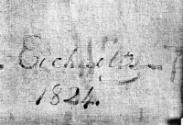 Eichholtz
1824.